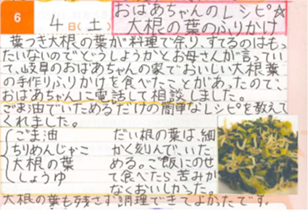 6
4日(土)
おばあちゃんのレシピ☆
大根の葉のふりかけ
葉つき大根の葉が料理で余り、すてるのはもっ
たいないのでどうしようかとお母さんが言ってい
て、岐阜のおばあちゃんの家でおいしい大根葉
の手作りふりかけを食べたことがあったので、
おばあちゃんに電話して相談しました。
ごま油でいためるだけの簡単なレシピを教えて
くれました。
ごま油
ちりめんじゃこ
大根の葉
しょうゆ
だい根の葉は、細
かく刻んで、いた
める。ご飯にのせ
て食べたら、苦みが
なくおいしかった。
大根の葉も残さず調理できてよかったです。